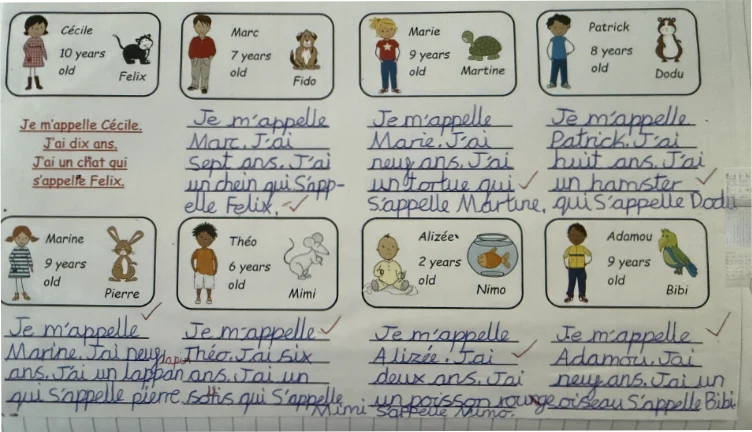 Cécile
10 years
old
Felix
Marc
7 years
old
Fido
Marie
9 years
old
Martine
Patrick
8 years
old
Dodu
Je m'appelle Cécile.
J'ai dix ans.
J'ai un chat qui
s'appelle Felix.
Je m'appelle
Marc. J'ai
Sept ans. J'ai
un chein qui S'app-
elle Felix.
Je m'appelle
Marie. J'ai
neuf ans. J'ai
un tortue qui
S'appelle Martine.
Je m'appelle
Patrick. J'ai
huit ans. J'ai
un hamster
qui S'appelle Dodu
Marine
9 years
old
Pierre
Théo
6 years
old
Mimi
Alizée
2 years
old
Nimo
Adamou
9 years
old
Bibi
Je m'appelle
Marine. J'ai neuf
ans. J'ai un lappan
qui S'appelle pierre.
Je m'appelle
Théo. J'ai six
ans. J'ai un
qui S'appelle
Mimi
Je m'appelle
Alizée. J'ai
deux ans. J'ai
un poisson rouge
S'appelle Nimo.
Je m'appelle
Adamou. J'ai
neuf ans. J'ai un
oiseau S'appelle Bibi